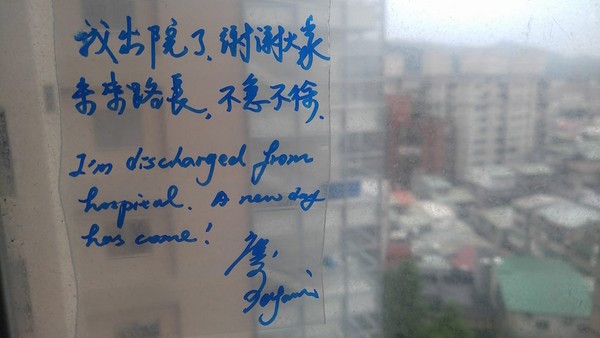 我出院了,謝謝大家
未來路長,不急不徐.
I'm discharged from
hospital. A new day
has come!